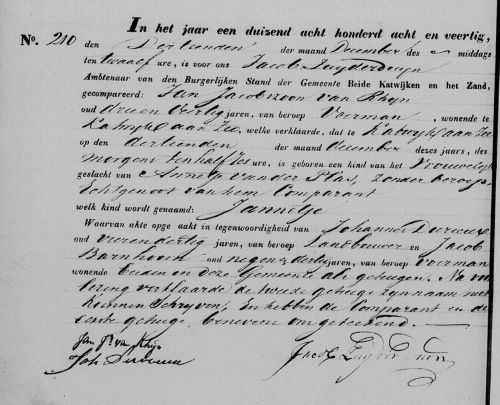 No. 210
In het jaar een duizend acht honderd acht en veertig,
den Dertienden der maand December des middags
ten twaalf ure, is voor ons Jacob Zuyderduyn
Ambtenaar van den Burgerlijken Stand der Gemeente Beide Katwijken en het Zand,
gecompareerd: Jan Jacobszoon van Rhyn
oud drie en dertig jaren, van beroep Voerman, wonende te
Katwyk aan Zee, welke verklaarde, dat te Katwyk aan Zee
op den dertienden der maand december dezes jaars, des
morgens ten half zes ure, is geboren een kind van het Vrouwelyk
geslacht van Annetje van der Plas, zonder beroep,
Echtgenoot van hem Comparant
welk kind wordt genaamd: Jannetje
Waarvan akte opge aakt in tegenwoordigheid van Johannes
oud vier en dertig jaren, van beroep Landbouwer en Jacob
Barnhoorn oud negen en dertig jaren, van beroep Voerman
wonende beiden en deze Gemeente als getuigen. Na voor
lezing verklaarde de tweede getuige zyn naam niet
te kunnen Schryven, En hebben de Comparant en de
eerste getuige, benevens ons geteekend.
Jan Jb. van Rhijn
Joh. Jacob Zuyderduin